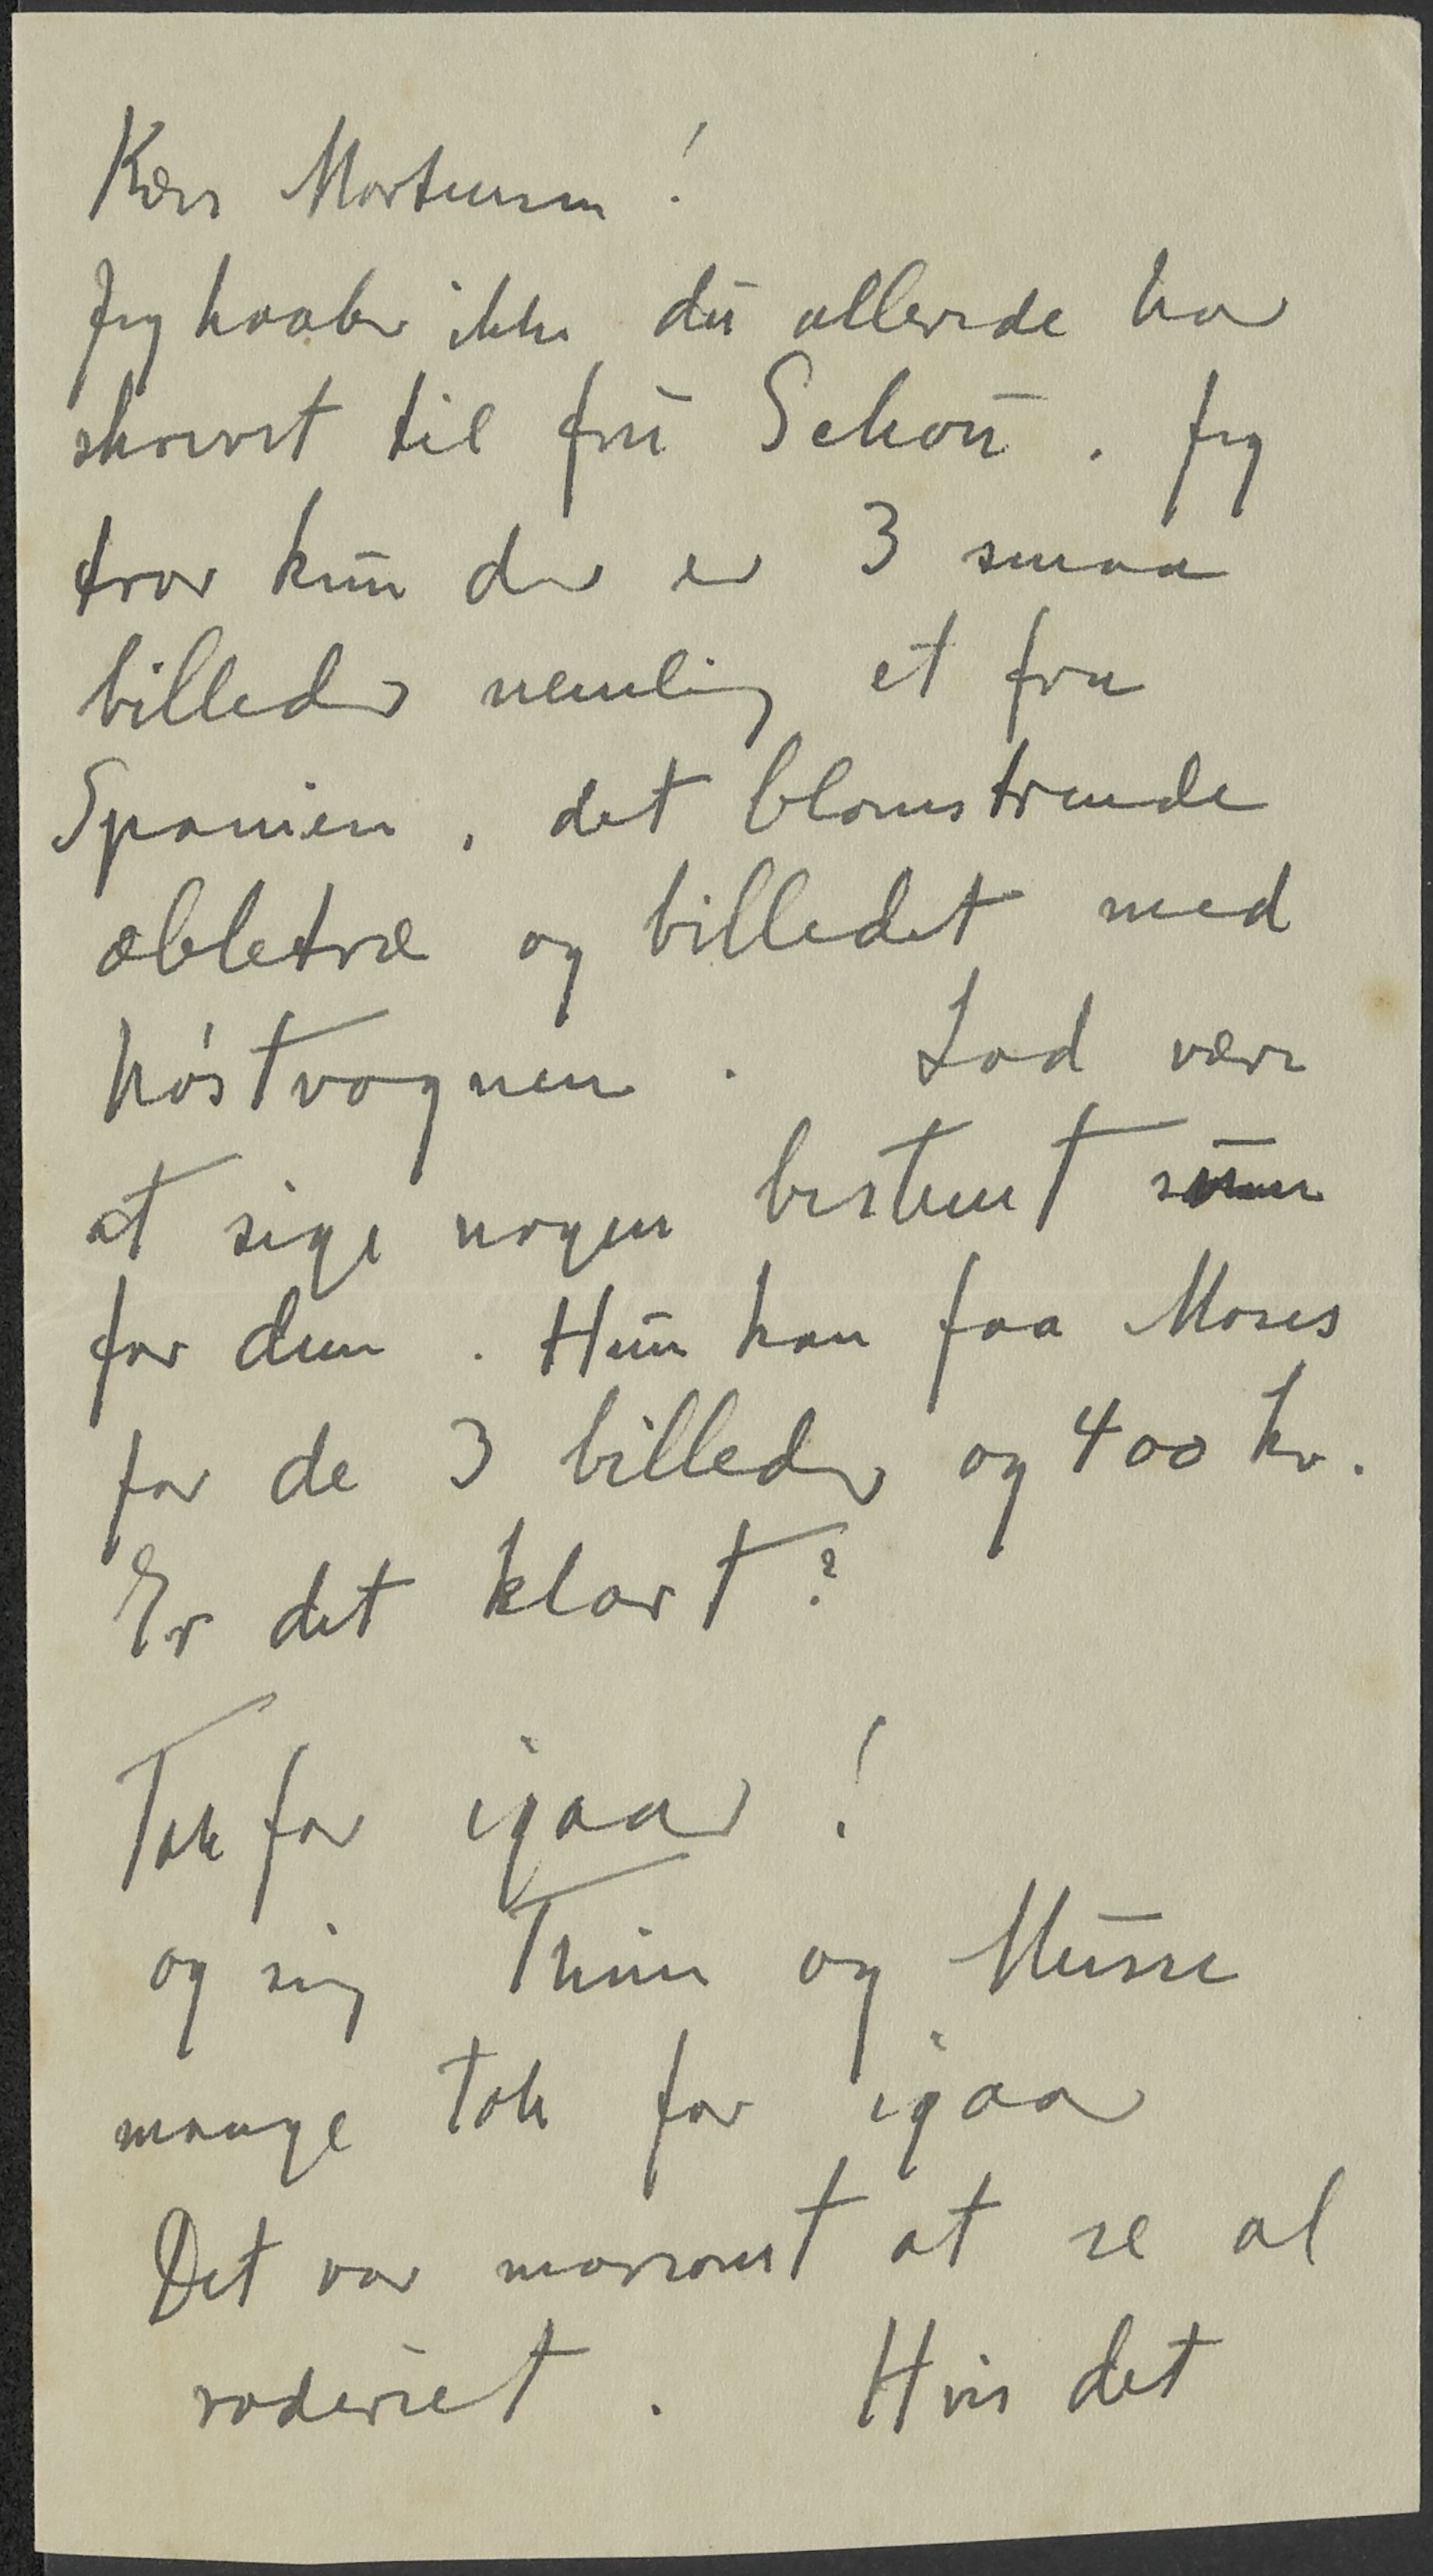 Kære Mortensen!
Jeg haaber ikke du allerede har
skrevet til fru Schou. Jeg
tror kun der er 3 smaa
billeder nemlig et fra
Spanien, det blomstrende
æbletræ og billedet med
høstvognen. Lad være
at sige nogen bestemt sum
for dem. Hun kan faa Moses
for de 3 billeder og 400 kr.
Er det klart?
Tak for igaar!
og sig Trine og Musse
mange tak for igaar
Det var morsomt at se al
roderiet. Hvis det